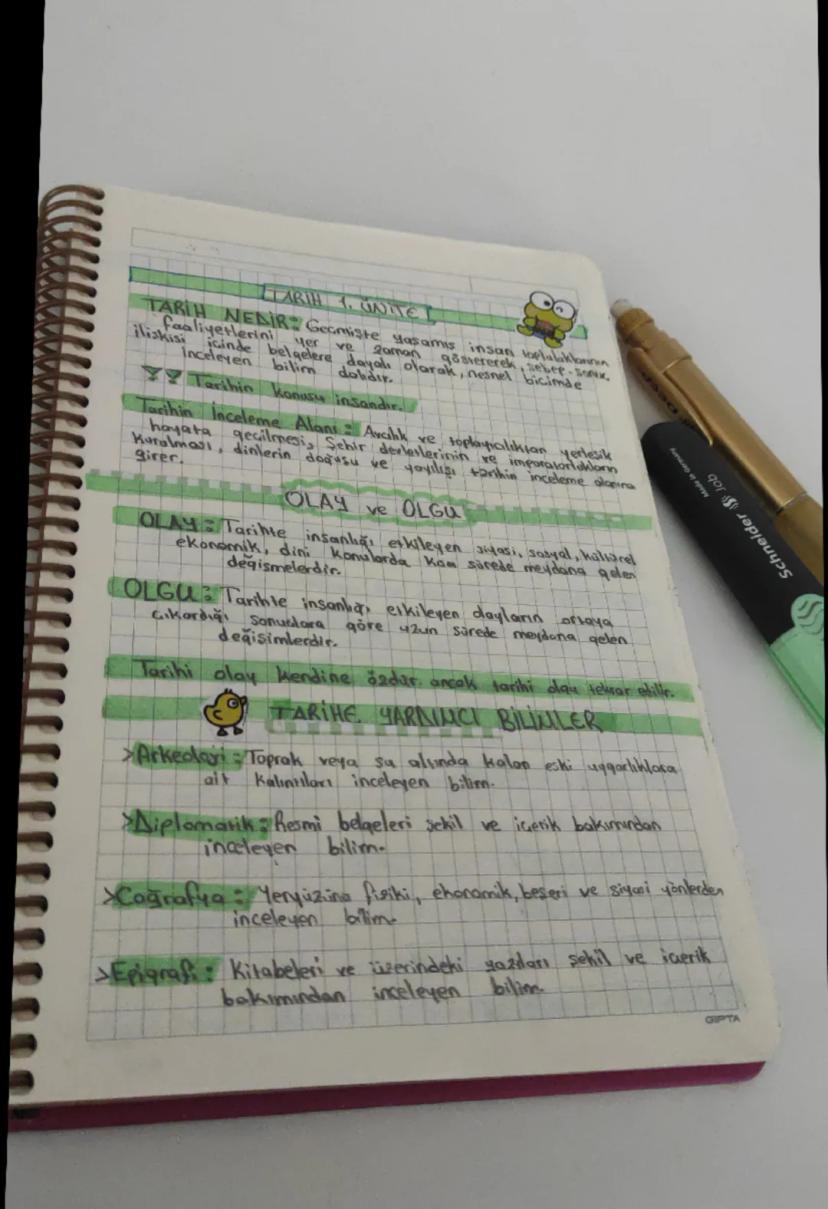 TARİH 1. ÜNİTE
TARİH NEDİR: Geçmişte yaşamış insan topluluklarının
faaliyetlerini yer ve zaman göstererek, sebep-sonuç
ilişkisi içinde belgelere dayalı olarak, nesnel biçimde
inceleyen bilim dalıdır.
Tarihin konusu insandır.
Tarihin İnceleme Alanı: Avcılık ve toplayıcılıktan yerleşik
hayata geçilmesi, Şehir devletlerinin ve imparatorlukların
kurulması, dinlerin doğuşu ve yayılışı tarihin inceleme alanına
girer.
OLAY ve OLGU
OLAY: Tarihte insanlığı etkileyen siyasi, sosyal, kültürel
ekonomik, dini konularda kısa sürede meydana gelen
değişmelerdir.
OLGU: Tarihte insanlığı etkileyen olayların ortaya
çıkardığı sonuçlara göre uzun sürede meydana gelen
değişimlerdir.
Tarihi olay kendine özdür. ancak tarihi olgu tekrar edilir.
TARİHE YARDIMCI BİLİMLER
>Arkeoloji: Toprak veya su altında kalan eski uygarlıklara
ait kalıntıları inceleyen bilim.
>Diplomatik: Resmi belgeleri şekil ve içerik bakımından
inceleyen bilim.
>Coğrafya: Yeryüzünü fiziki, ekonomik, beşeri ve siyasi yönlerden
inceleyen bilim.
>Epigrafi: Kitabeleri ve üzerindeki yazıları şekil ve içerik
bakımından inceleyen bilim.
GIPTA
Schneider
Job
Made in Germany